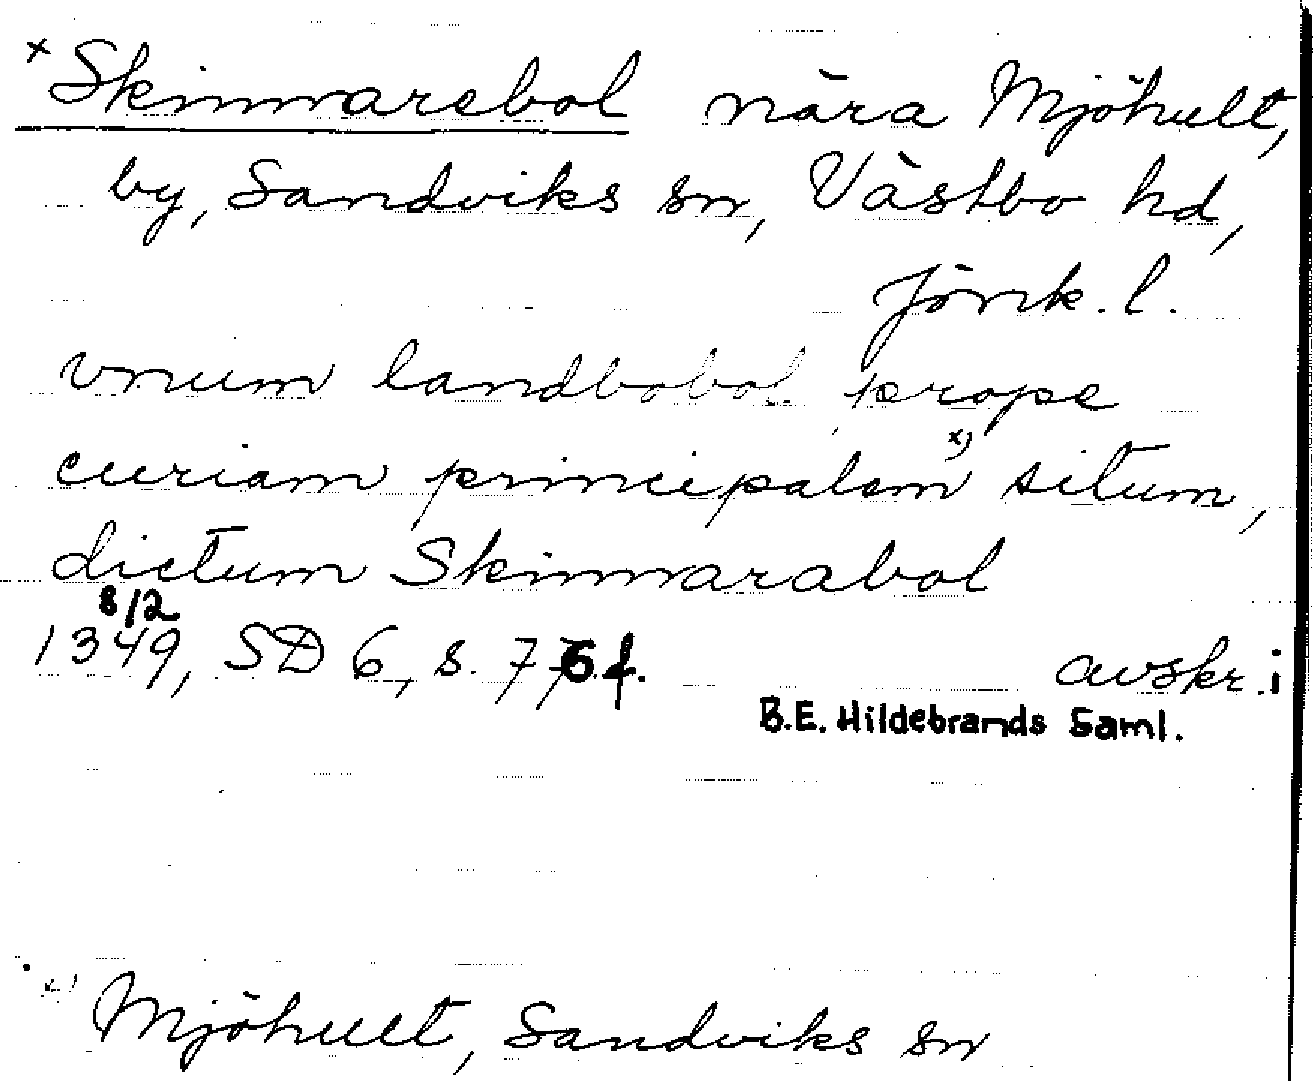 x Skinnarebol nära Mjöhult,
by, Sandviks sn, Västbo hd,
Jönk. l.
vnum landbobol prope
curiam principalem x) situm,
dictum Skinnarabol
8/2
1349, SD 6, s. 76 f. avskr. i
B.E. Hildebrands Saml.
x) Mjöhult, Sandviks sn